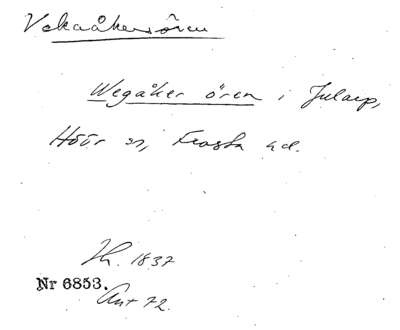 Vekaåkersören
Wegåker ören i Jularp,
Höör sn, Frosta hd.
Th. 1837
Nr 6853.
Ant 72.